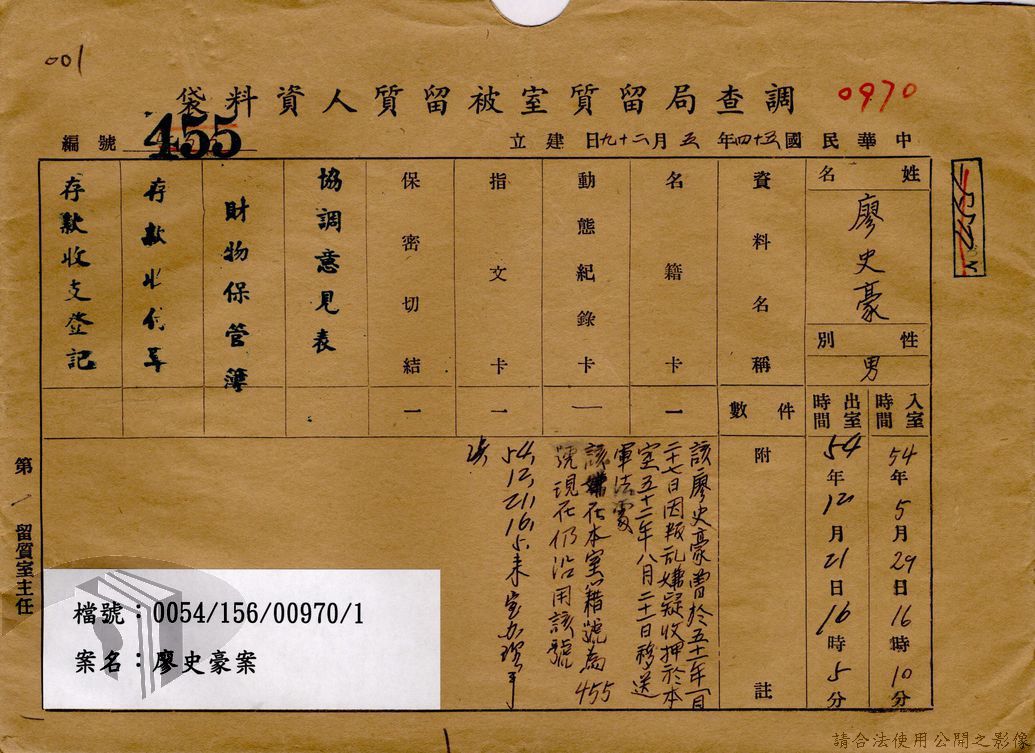 001
調查局留質室被留質人資料袋
0970
編號 455
中華民國五十四年五月二十九日建立
姓名
廖史豪
性別
男
入室時間
54年5月29日16時10分
出室時間
54年12月21日16時5分
資料名稱
件數
附註
名籍卡
一
動態紀錄卡
一
指文卡
一
保密切結
一
協調意見表
財物保管簿
存款收代單
存款收支登記
該廖史豪曾於五十一年一月
二十七日因叛乱嫌疑收押於本
室五十二年八月二十一日移送
軍法處
該嫌在本室心籍號為455
號現在仍沿用該號
54.12.21.16.5.來室
第1留質室主任
檔號：0054/156/00970/1
案名：廖史豪案
請合法使用公開之影像